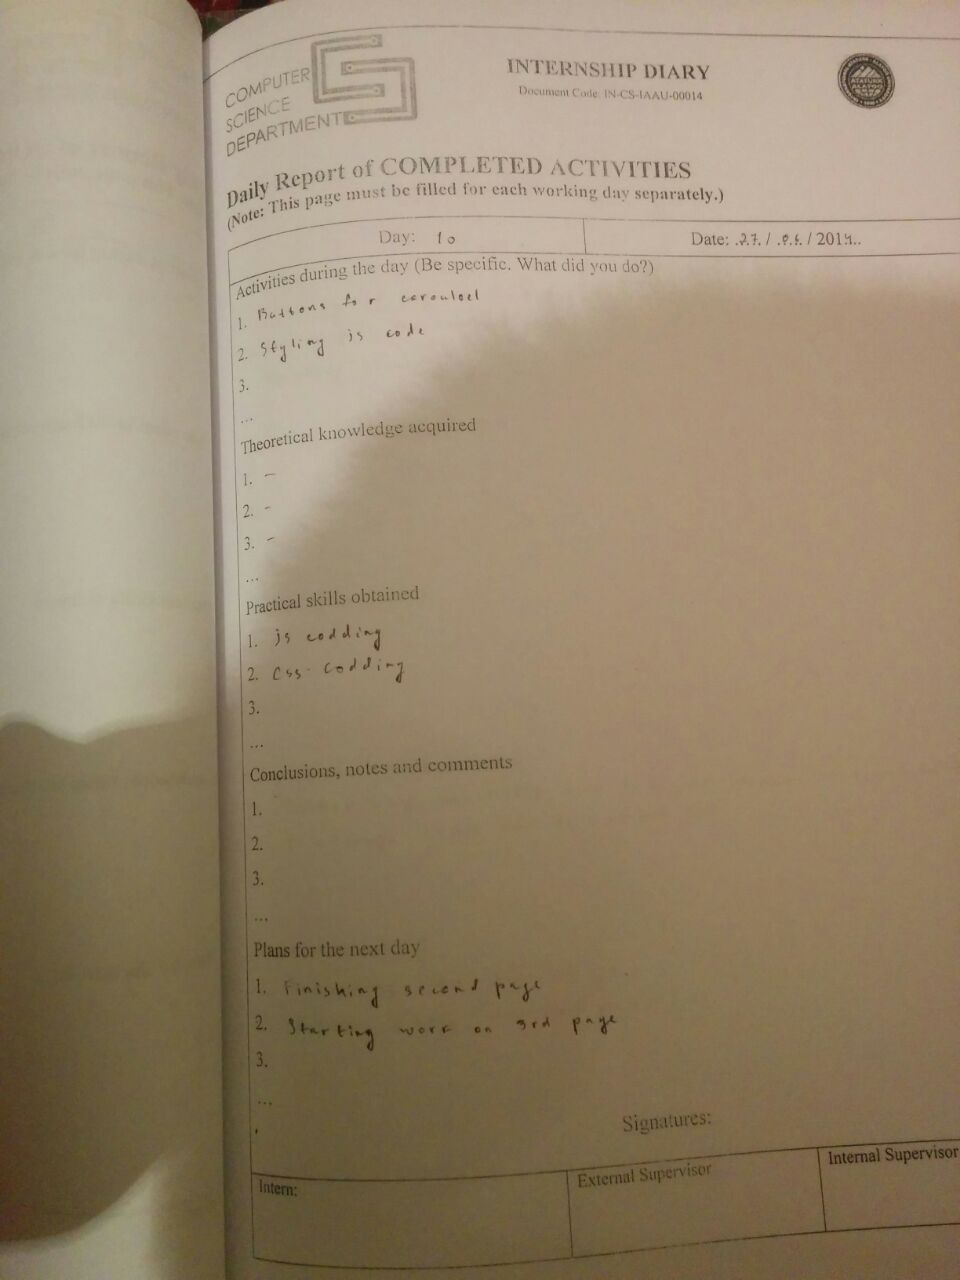 COMPUTER
SCIENCE
DEPARTMENT
INTERNSHIP DIARY
Document Code: IN-CS-IAAU-00014
ATATURK
ALATOO
Daily Report of COMPLETED ACTIVITIES
(Note: This page must be filled for each working day separately.)
Day: 10
Date: .27. / .06. / 2014..
Activities during the day (Be specific. What did you do?)
1. Buttons for carousel
2. Styling js code
3.
...
Theoretical knowledge acquired
1. -
2. -
3. -
...
Practical skills obtained
1. js codding
2. css codding
3.
...
Conclusions, notes and comments
1.
2.
3.
...
Plans for the next day
1. Finishing second page
2. Starting work on 3rd page
3.
...
Signatures:
Intern:
External Supervisor
Internal Supervisor